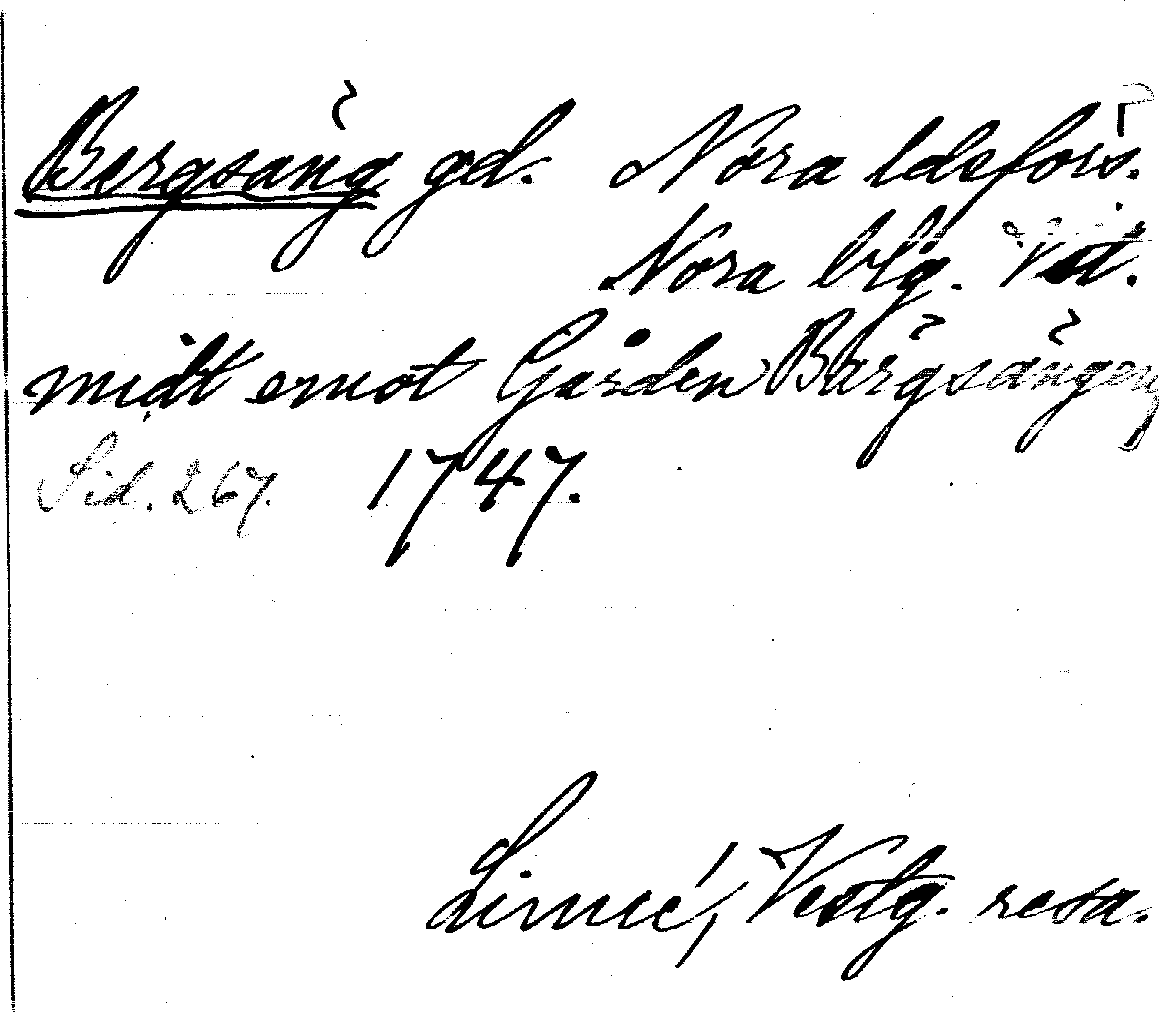 Bergsäng gd. Nora ldsförs.
Nora blg. Vst.
midt emot Gården Bärgsängen,
Sid. 267. 1747.
Linné, Vestg. resa.